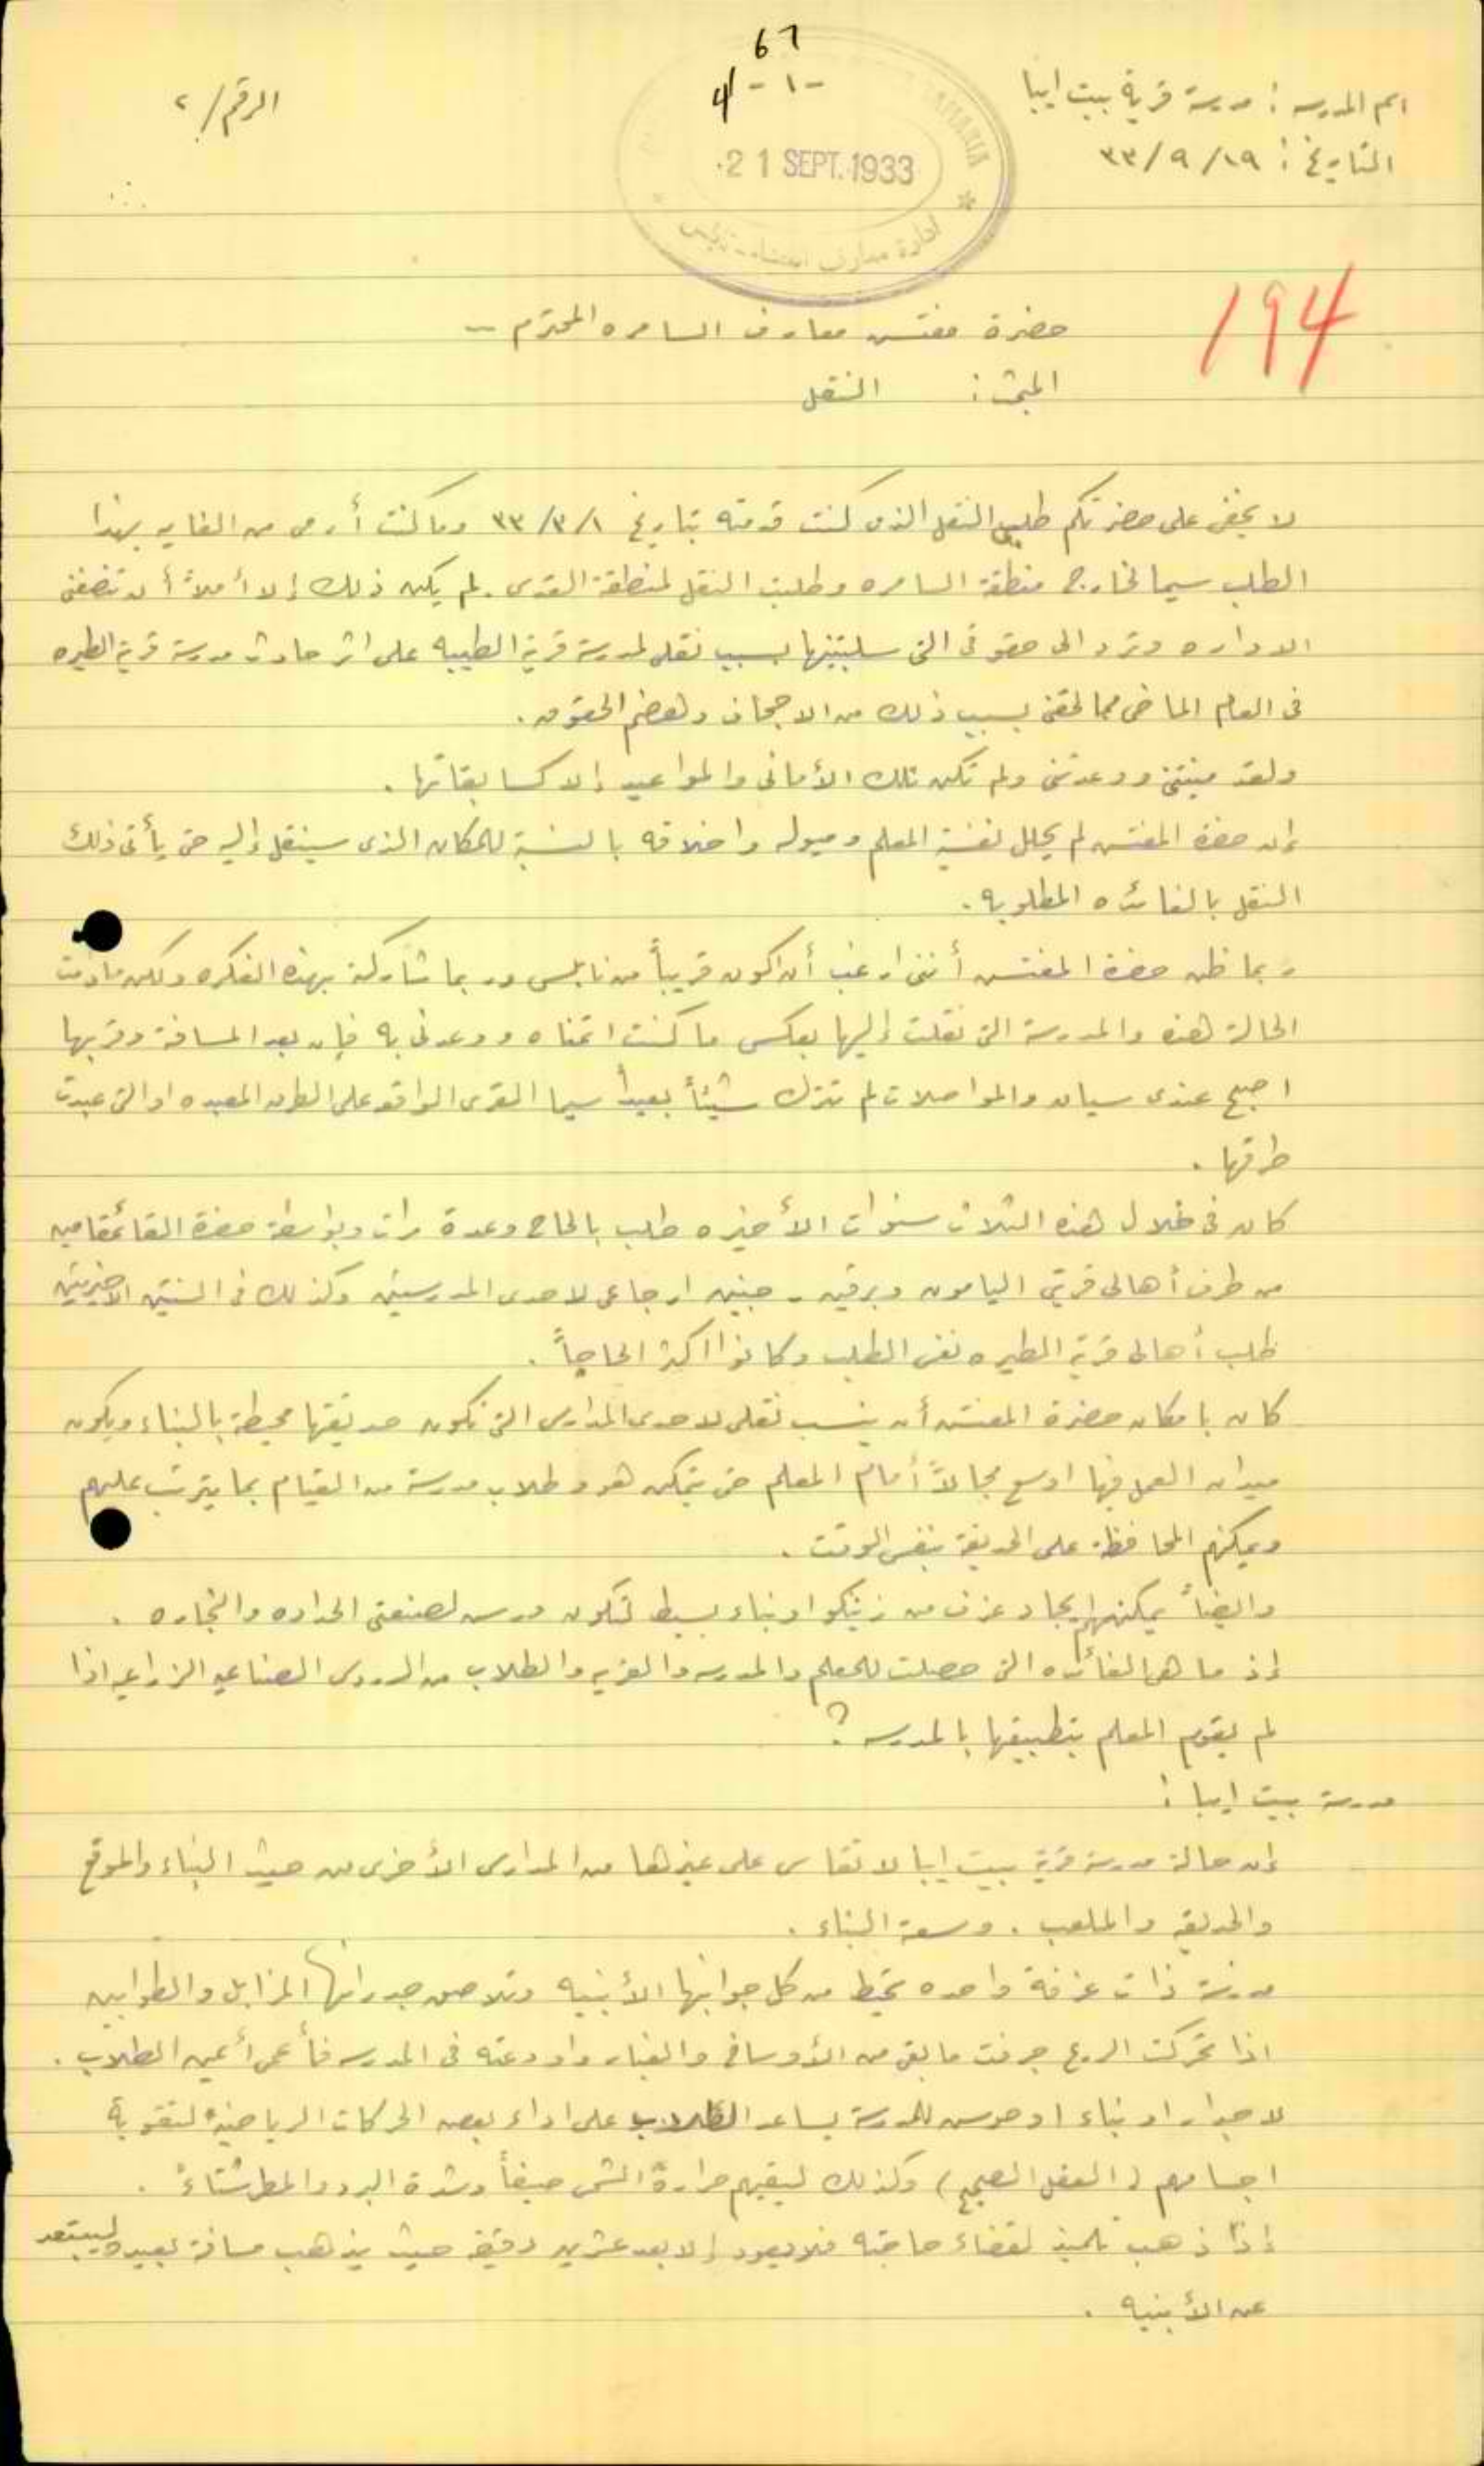 67
4 - ١ -
اسم المدرسه : مدرسة قرية بيت ايبا
الرقم / ٢
التاريخ : ١٩ / ٩ / ٣٣
SAMARIA
21 SEPT. 1933
ادارة معارف نابلس
194
حضرة مفتش معارف السامره المحترم -
المبحث : النقل
لا يخفى على حضرتكم طلبي النقل الذي كنت قدمته بتاريخ ٣٣/٣/١ وما كنت أرمي من الغايه بهذا
الطلب سيما لخارج منطقة السامره وطلبت النقل لمنطقة القدس . لم يكن ذلك إلا أملاً أن تنصفني
الاداره وترد الى حقوقي التي سلبتنيها بسبب نقلي لمدرسة قرية الطيبه على اثر حادث مدرسة قرية الطيره
في العام الماضي مما لحقني بسبب ذلك من الاجحاف وهضم الحقوق .
ولقد منتني ووعدتني ولم تكن تلك الأماني والمواعيد إلا كسابقاتها .
إن حضرة المفتش لم يحلل نفسية المعلم وميوله واخلاقه بالنسبة للمكان الذي سينقل إليه حتى يأتي ذلك
النقل بالفائده المطلوبه .
ربما ظن حضرة المفتش أنني ارغب أن اكون قريباً من نابلس وربما شاركته بهذه الفكره ولكن مادامت
الحالة هذه والمدرسة التي نقلت إليها بعكس ما كنت اتمناه ووعدني به فإن بعد المسافة وقربها
اصبح عندي سيان والمواصلات لم تترك شيئاً بعيداً سيما القرى الواقعه على الطرق المعبده او التي عبدت
طرقها .
كان في خلال هذه الثلاث سنوات الأخيره طلب بالحاح وعدة مرات وبواسطة حضرة القائمقامين
من طرف أهالي قريتي اليامون وبرقين - جنين ارجاعي لاحدى المدرستين وكذلك في السنتين الاخيرتين
طلب أهالي قرية الطيره نفس الطلب وكانوا اكثر الحاحاً .
كان بامكان حضرة المفتش أن ينسب نقلي لاحدى المدارس التي تكون حديقتها محيطة بالبناء ويكون
ميدان العمل فيها اوسع مجالاً أمام المعلم حتى يتمكن هو وطلاب مدرسته من القيام بما يترتب عليهم
ويمكنهم المحافظة على الحديقة بنفس الوقت .
وايضاً يمكنهم ايجاد غرف من زينكو او بناء بسيط لتكون درس لصنعتي الحداده والنجاره .
إذ ما هي الفائده التي حصلت للمعلم والمدرسه والقريه والطلاب من الدروس الصناعيه الزراعيه اذا
لم يقوم المعلم بتطبيقها بالمدرسه ؟
مدرسة بيت ايبا :
إن حالة مدرسة قرية بيت ايبا لا تقاس على غيرها من المدارس الأخرى من حيث البناء والموقع
والحديقه والملعب . وسعة البناء .
مدرسة ذات غرفة واحده تحيط من كل جوانبها الأبنيه وتلاصق جدرانها المزابل والطوابين
اذا تحركت الريح جرفت ما بقي من الأوساخ والغبار واودعته في المدرسه فأعمى أعين الطلاب .
لا جدار او بناء او حوش للمدرسة يساعد الطلاب على اداء بعض الحركات الرياضية لتقوية
اجسامهم ( العقل الصحيح ) وكذلك ليقيهم حرارة الشمس صيفاً وشدة البرد والمطر شتاءً .
إذا ذهب تلميذ لقضاء حاجته فلا يعود إلا بعد عشرين دقيقه حيث يذهب مسافة بعيده ليبتعد
عن الأبنيه .